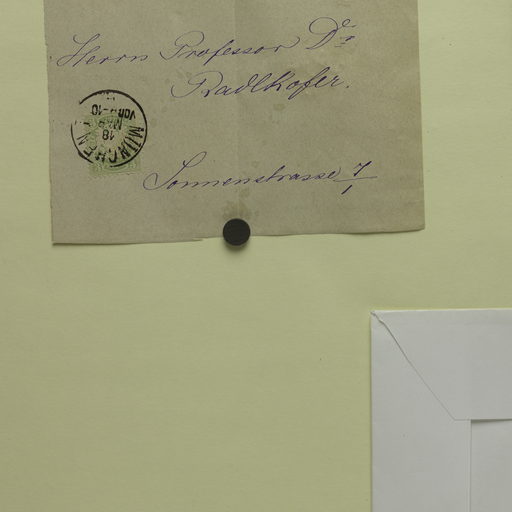 Herrn Professor Dr.
Radlkofer.
MÜNCHEN
18
VOR 9-10
Sonnenstrasse 7/1